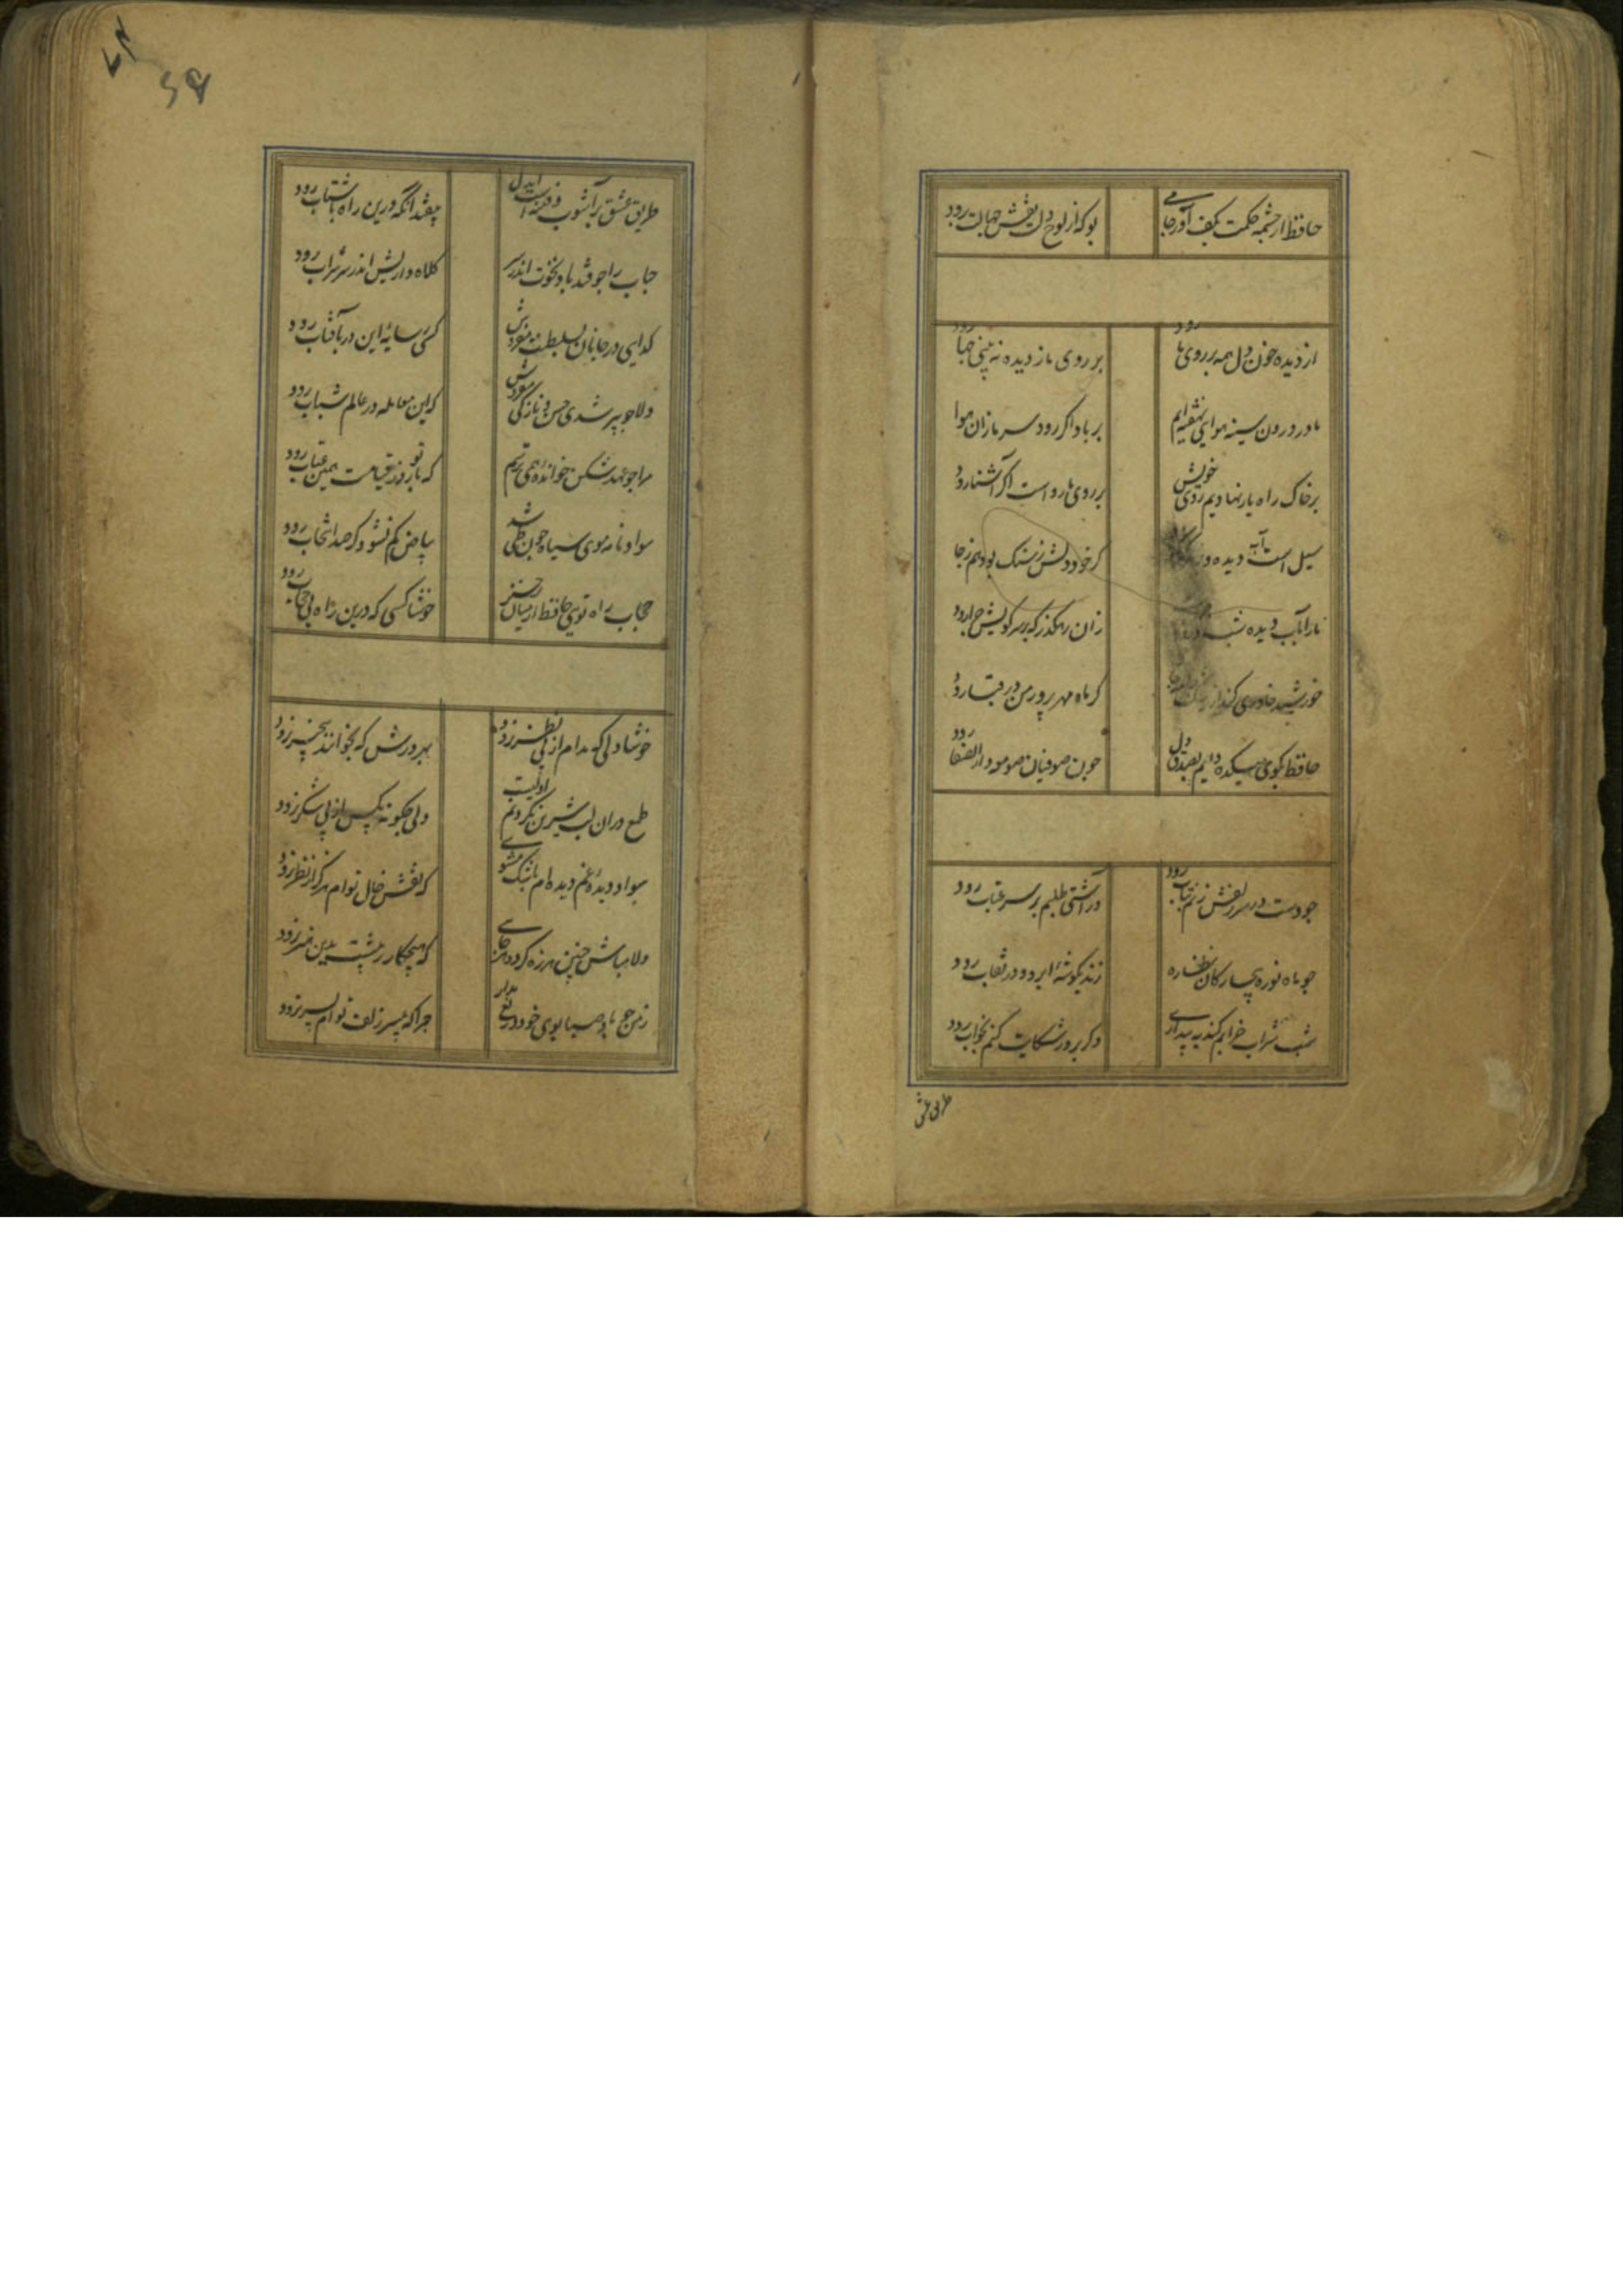 حافظ از چشمه حکمت بکف آور جامی
بو که از لوح دلت نقش جهالت برود
از دیده خون دل همه بر روی ما رود
بر روی ما ز دیده نه بینی چها رود
ما در درون سینه هوایی نهفته‌ایم
بر باد اگر رود سر ما زان هوا
بر خاک راه یار نهادیم روی خویش
بر روی ما رواست اگر آشنا رود
سیل است آب دیده و
گر خود دلش ز سنگ بود هم ز جا
ما را بآب دیده شب و روز
زان رهگذر که بر سر کویش چرا رود
خورشید خاوری کند از رشک
گر ماه مهرپرور من در قبا رود
حافظ بکوی میکده دایم بصدق دل
چون صوفیان صومعه دار الصفا رود
چو دست در سر زلفش زنم بتاب رود
ور آشتی طلبم بر سر عتاب رود
چو ماه نو ره بیچارگان نظاره
زند بگوشهٔ ابرو و در نقاب رود
شب شراب خرابم کند به بیداری
وگر بروز شکایت کنم بخواب رود
طریق عشق
طریق عشق پر آشوب و فتنه است ایدل
بیفتد آنکه درین راه باشتاب رود
حباب را چو فتد باد نخوت اندر سر
کلاه داریش اندر سر شراب رود
گدایی در جانان بسلطنت مفروش
کسی ز سایهٔ این در بآفتاب رود
دلا چو پیر شدی حسن و نازکی مفروش
که این معامله در عالم شباب رود
مرا چو عهد شکن خوانده‌ای همی ترسم
که با تو روز قیامت همین عتاب رود
سواد نامه موی سیاه چون طی شد
بیاض کم نشود گر صد انتخاب رود
حجاب راه تویی حافظ از میان برخیز
خوشا کسی که درین راه بی حجاب رود
خوشا دلی که مدام از پی نظر نرود
بهر درش که بخوانند بیخبر نرود
طمع دران لب شیرین نکردنم اولیست
ولی چگونه مگس از پی شکر نرود
سواد دیدهٔ غم دیده‌ام باشک مشوی
که نقش خال توام هرگز از نظر نرود
دلا مباش چنین هرزه گرد و هرجای
که هیچکار ز پیشت بدین هنر نرود
ز من چو باد صبا بوی خود دریغ مدار
چرا که بیسر زلف توام بسر نرود